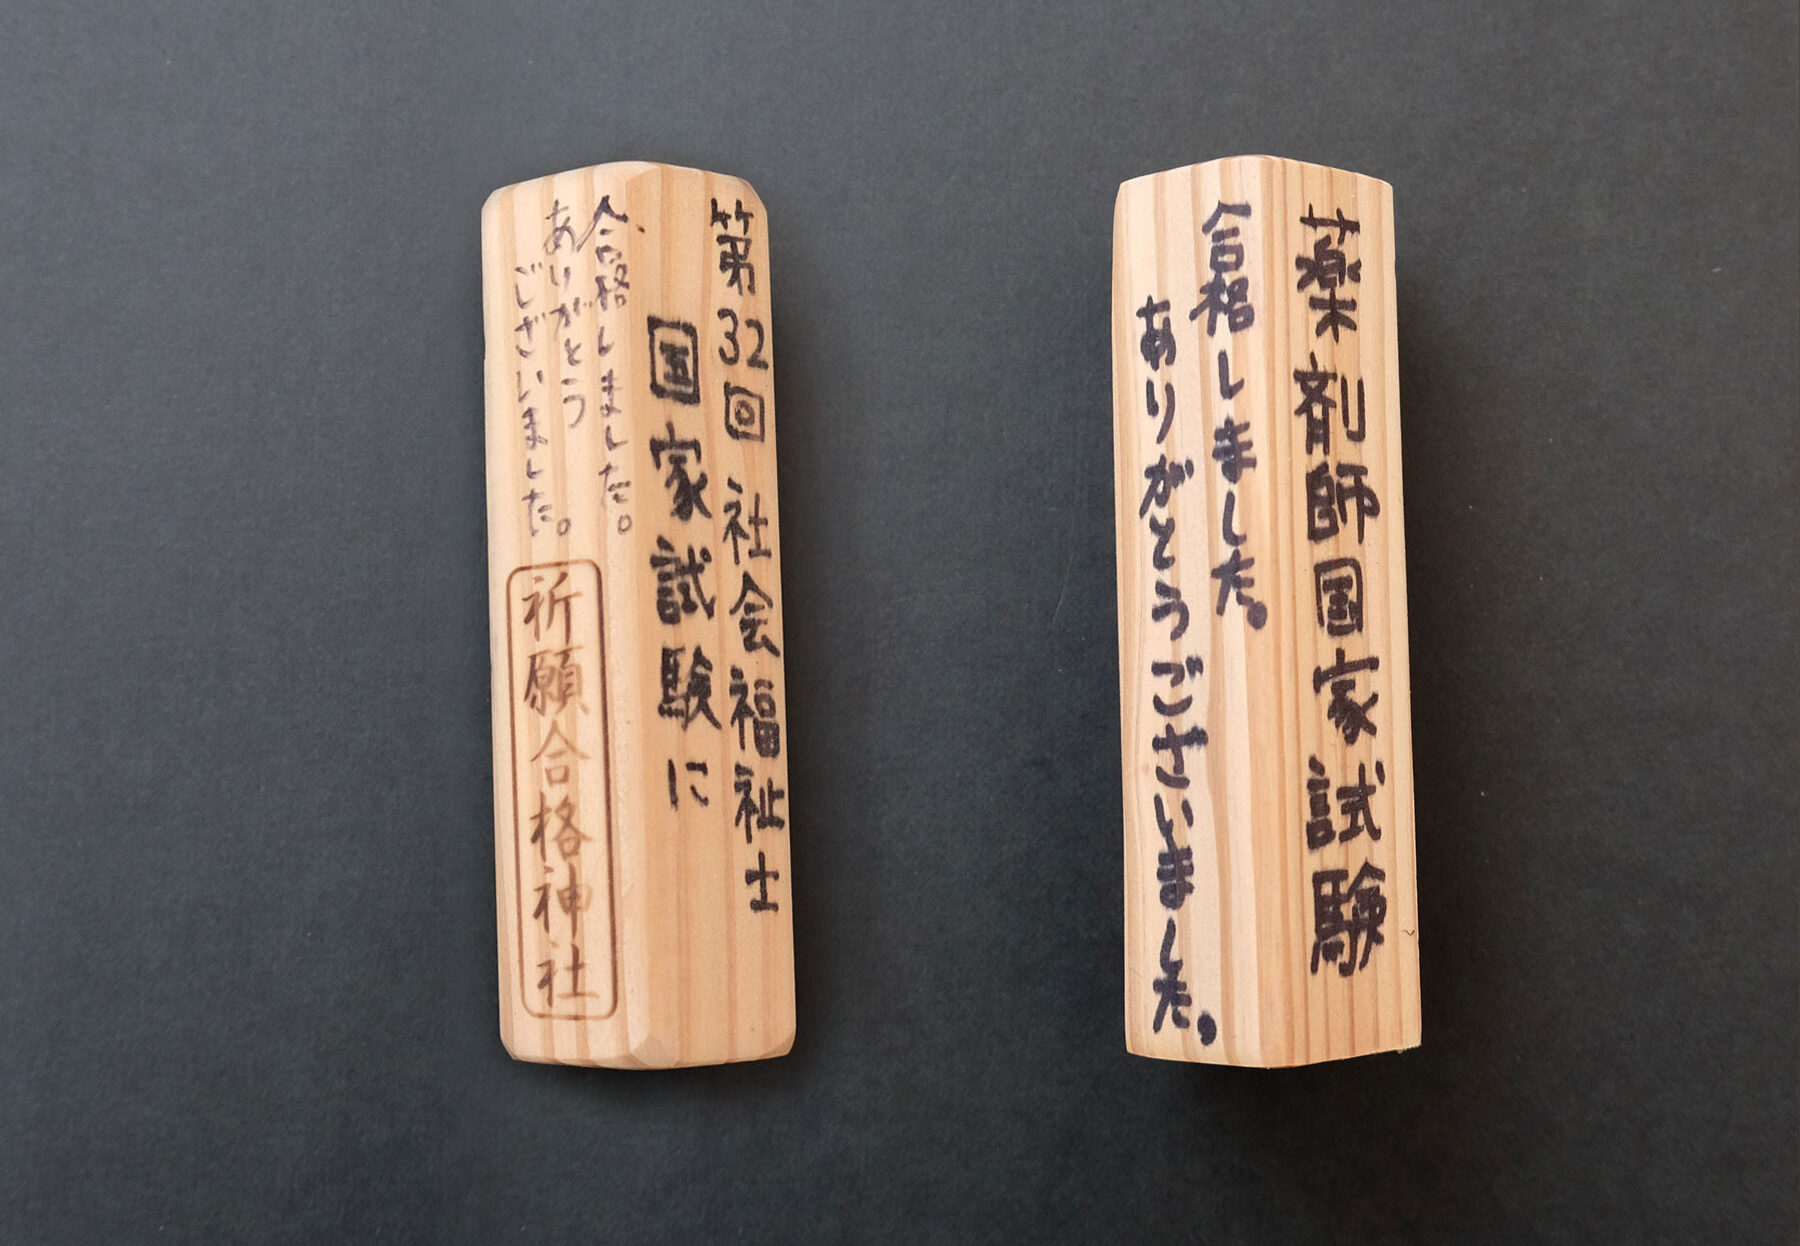 第32回 社会福祉士
国家試験に
合格しました。
ありがとう
ございました。
祈願合格神社
薬剤師国家試験
合格しました。
ありがとうございました。